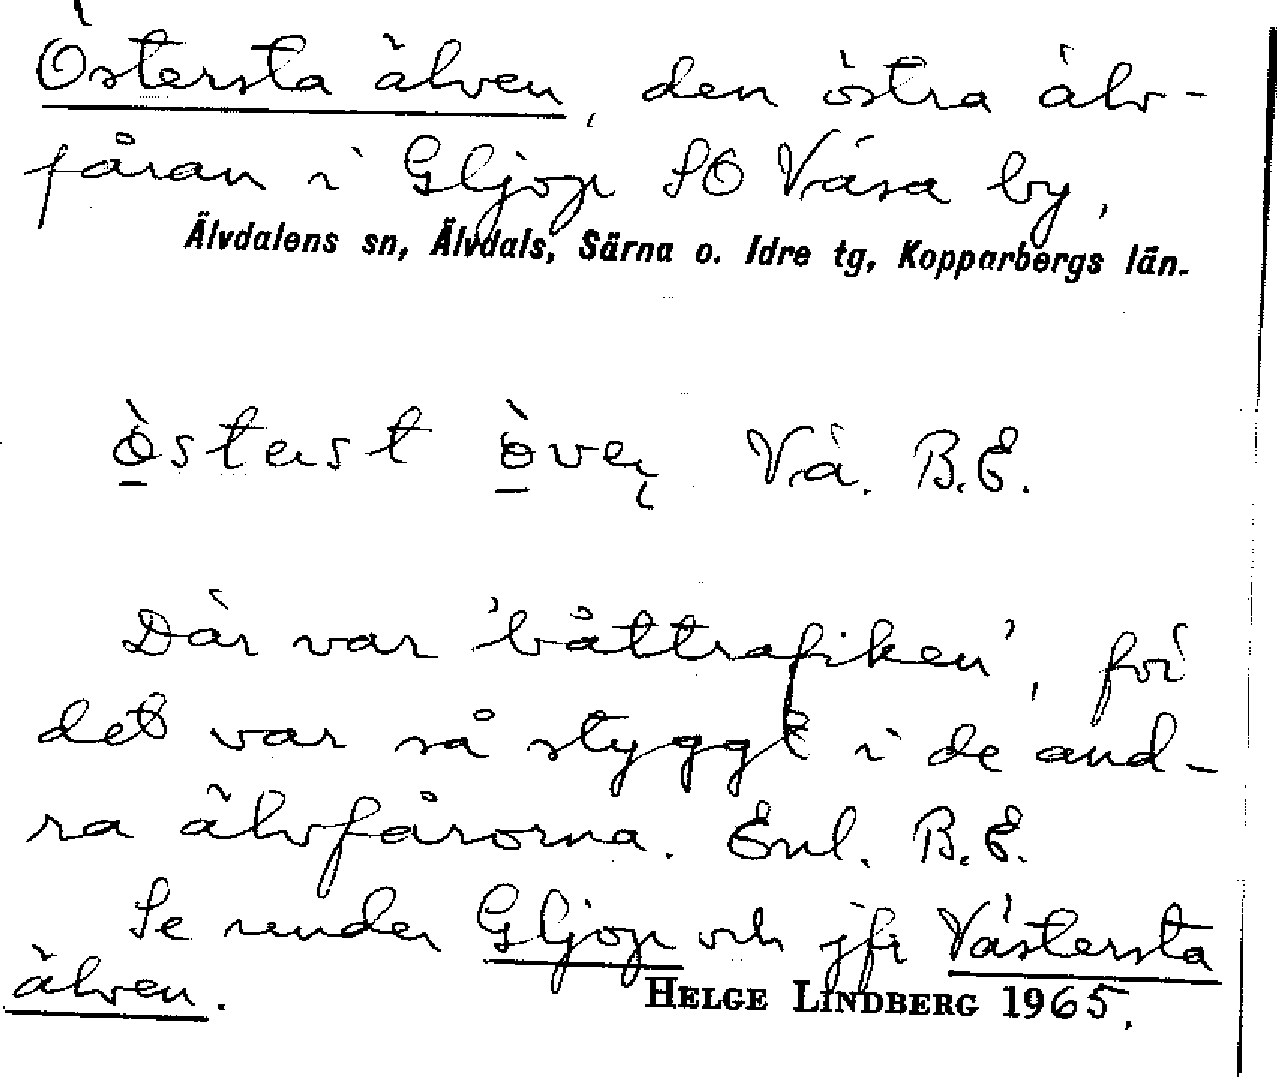 Östersta älven, den östra älv-
fåran i Gljop SO Väsa by,
Älvdalens sn, Älvdals, Särna o. Idre tg, Kopparbergs län.
Vä. B.E.
Där var 'båttrafiken', för
det var så styggt i de and-
ra älvfårorna. Enl. B.E.
Se under Gljop och jfr Västersta
älven.
HELGE LINDBERG 1965.